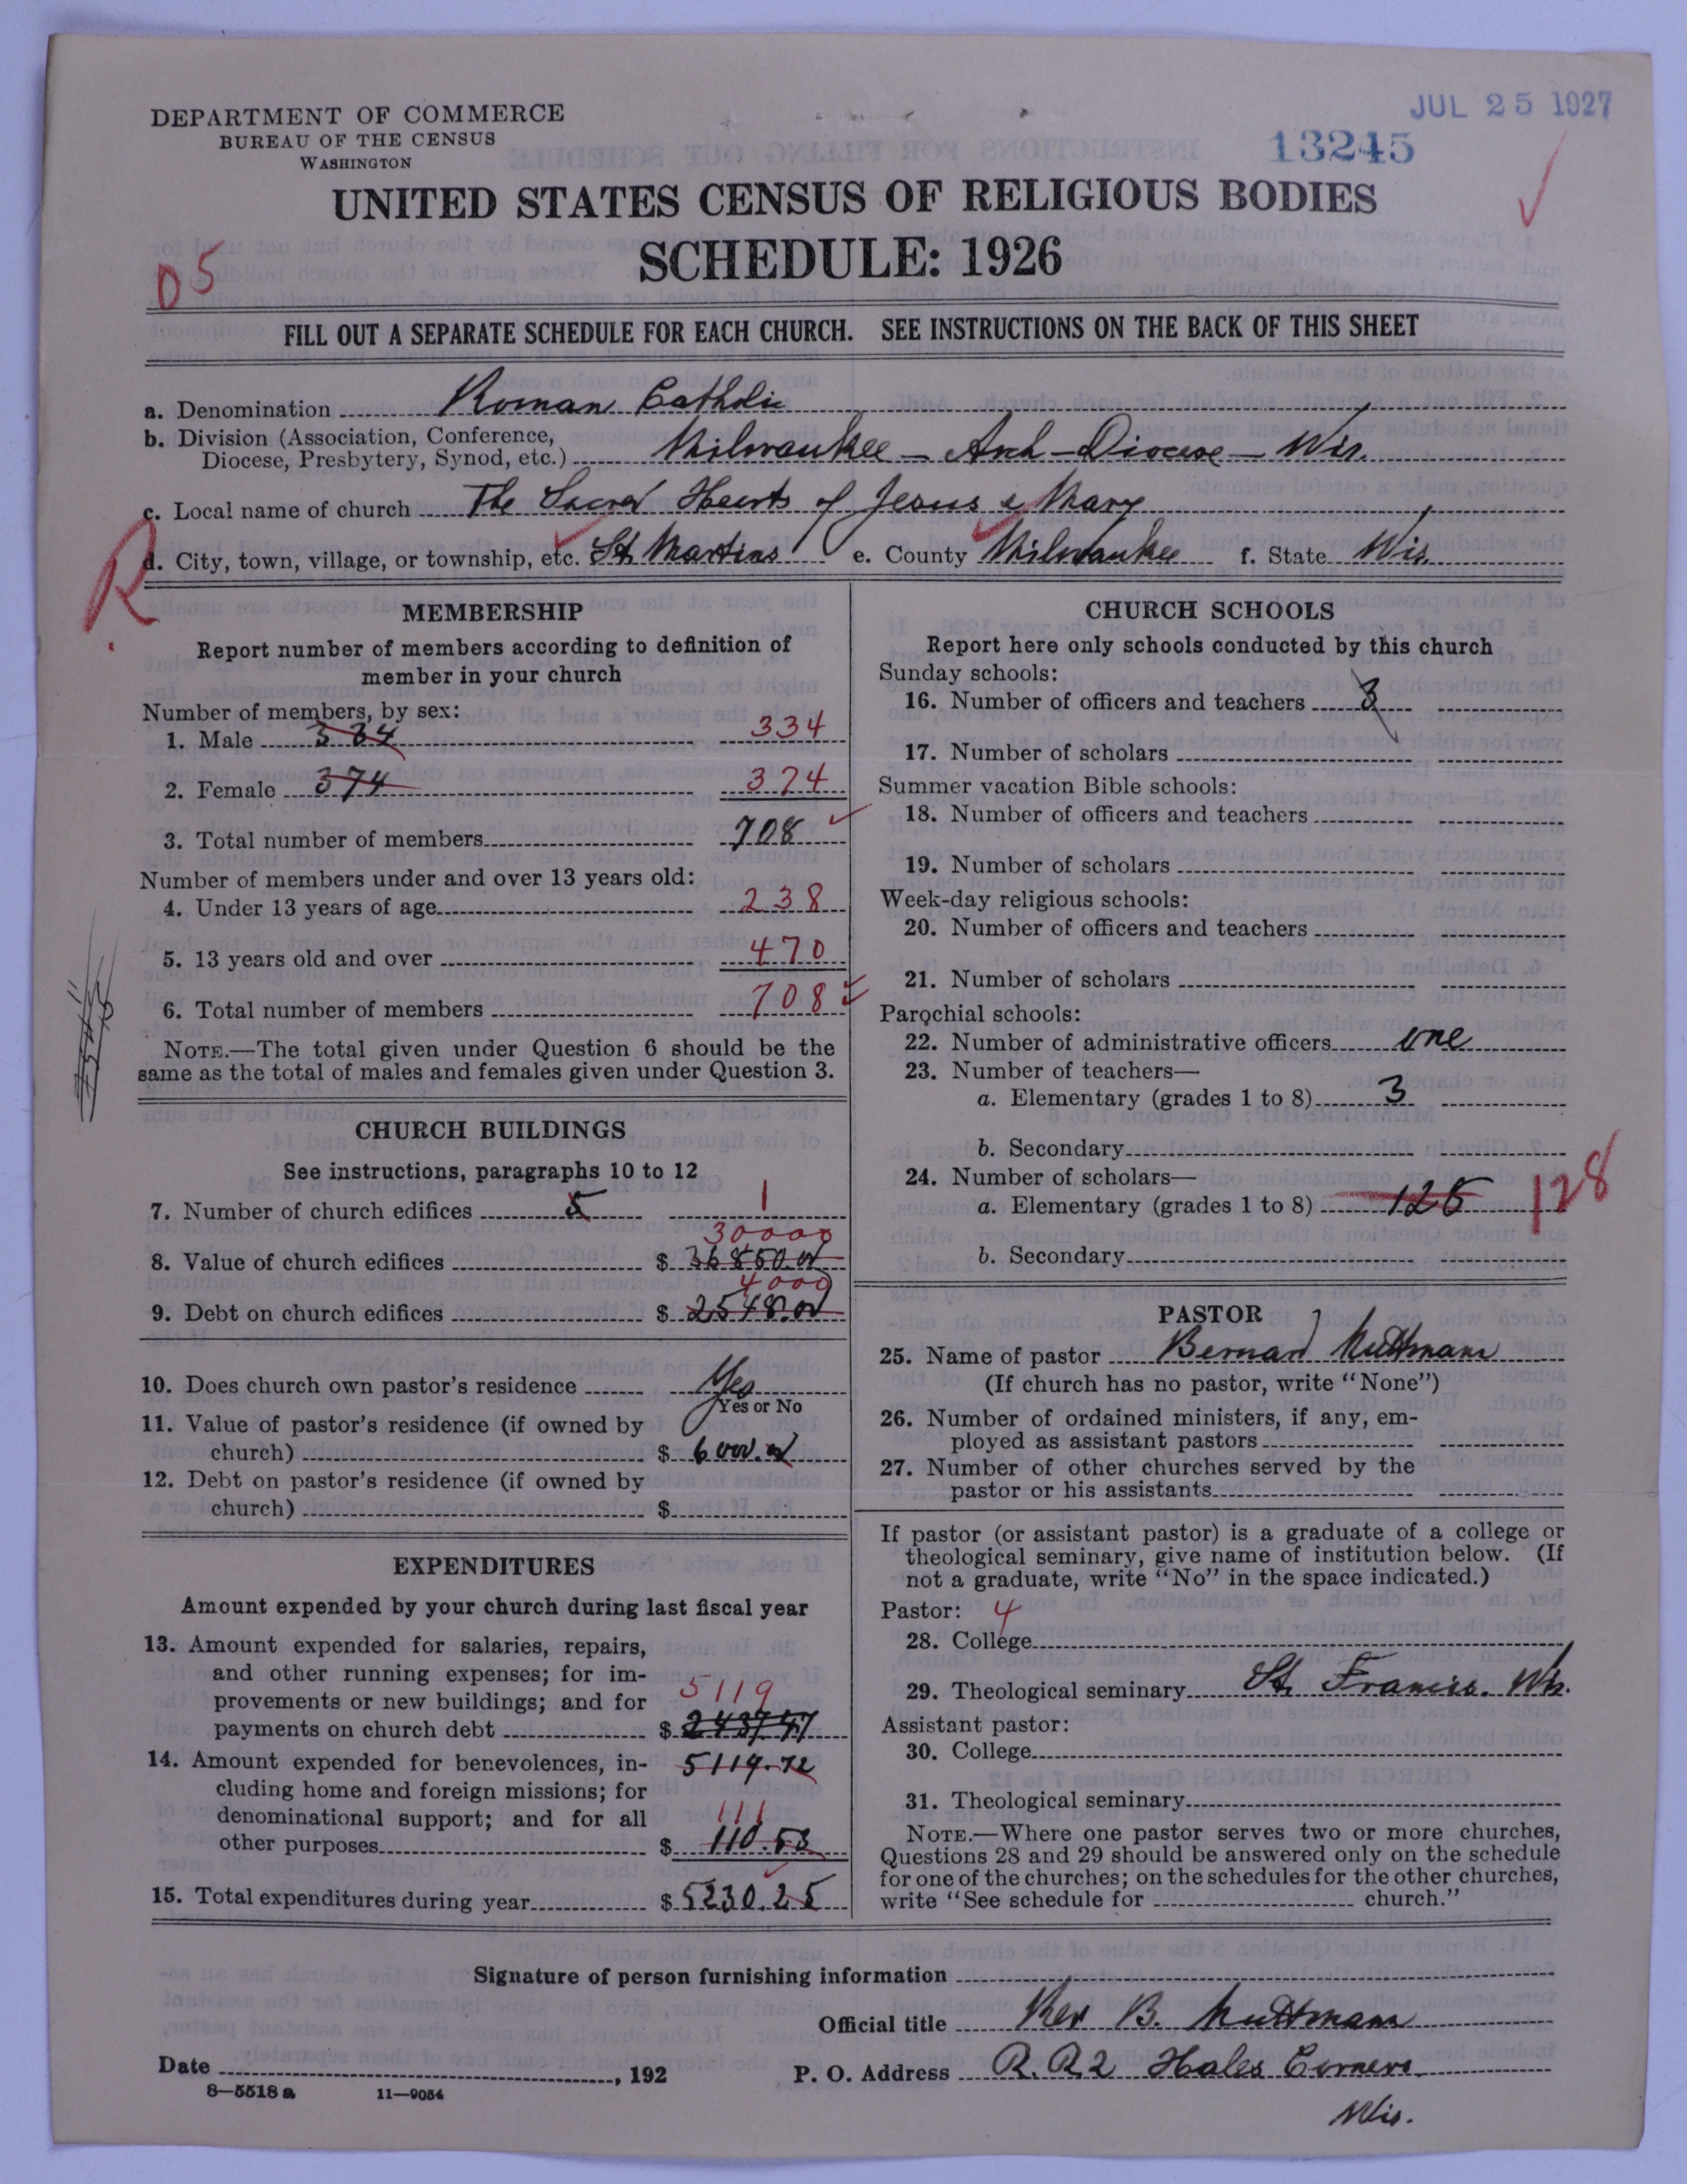 DEPARTMENT OF COMMERCE
BUREAU OF THE CENSUS
WASHINGTON
JUL 25 1927
13245
UNITED STATES CENSUS OF RELIGIOUS BODIES
SCHEDULE: 1926
05
FILL OUT A SEPARATE SCHEDULE FOR EACH CHURCH. SEE INSTRUCTIONS ON THE BACK OF THIS SHEET
a. Denomination Roman Catholic
b. Division (Association, Conference,
Diocese, Presbytery, Synod, etc.) Milwaukee – Arch–Diocese – Wis.
c. Local name of church The Sacred Hearts of Jesus & Mary
R
d. City, town, village, or township, etc. St. Martins e. County Milwaukee f. State Wis.
MEMBERSHIP
Report number of members according to definition of
member in your church
Number of members, by sex:
1. Male 334 334
2. Female 374 374
3. Total number of members 708
Number of members under and over 13 years old:
4. Under 13 years of age 238
5. 13 years old and over 470
6. Total number of members 708
NOTE.—The total given under Question 6 should be the
same as the total of males and females given under Question 3.
CHURCH BUILDINGS
See instructions, paragraphs 10 to 12
7. Number of church edifices 5 1
30000
8. Value of church edifices $ 36850.00
4000
9. Debt on church edifices $ 2548.00
10. Does church own pastor's residence Yes
Yes or No
11. Value of pastor's residence (if owned by
church) $ 6000.00
12. Debt on pastor's residence (if owned by
church) $
EXPENDITURES
Amount expended by your church during last fiscal year
13. Amount expended for salaries, repairs,
and other running expenses; for im-
provements or new buildings; and for 5119
payments on church debt $
14. Amount expended for benevolences, in- 5119.72
cluding home and foreign missions; for
denominational support; and for all 111
other purposes $ 110.53
15. Total expenditures during year $ 5230.25
CHURCH SCHOOLS
Report here only schools conducted by this church
Sunday schools:
16. Number of officers and teachers 3
17. Number of scholars
Summer vacation Bible schools:
18. Number of officers and teachers
19. Number of scholars
Week-day religious schools:
20. Number of officers and teachers
21. Number of scholars
Parochial schools:
22. Number of administrative officers one
23. Number of teachers—
a. Elementary (grades 1 to 8) 3
b. Secondary
24. Number of scholars—
a. Elementary (grades 1 to 8) 128 128
b. Secondary
PASTOR
25. Name of pastor Bernard Huttmann
(If church has no pastor, write "None")
26. Number of ordained ministers, if any, em-
ployed as assistant pastors
27. Number of other churches served by the
pastor or his assistants
If pastor (or assistant pastor) is a graduate of a college or
theological seminary, give name of institution below. (If
not a graduate, write "No" in the space indicated.)
Pastor: 4
28. College
29. Theological seminary St. Francis. Wis.
Assistant pastor:
30. College
31. Theological seminary
NOTE.—Where one pastor serves two or more churches,
Questions 28 and 29 should be answered only on the schedule
for one of the churches; on the schedules for the other churches,
write "See schedule for church."
Signature of person furnishing information
Official title Rev B. Huttmann
Date , 192 P. O. Address R. R. 2 Hales Corners
Wis.
8—5518 a 11—9054